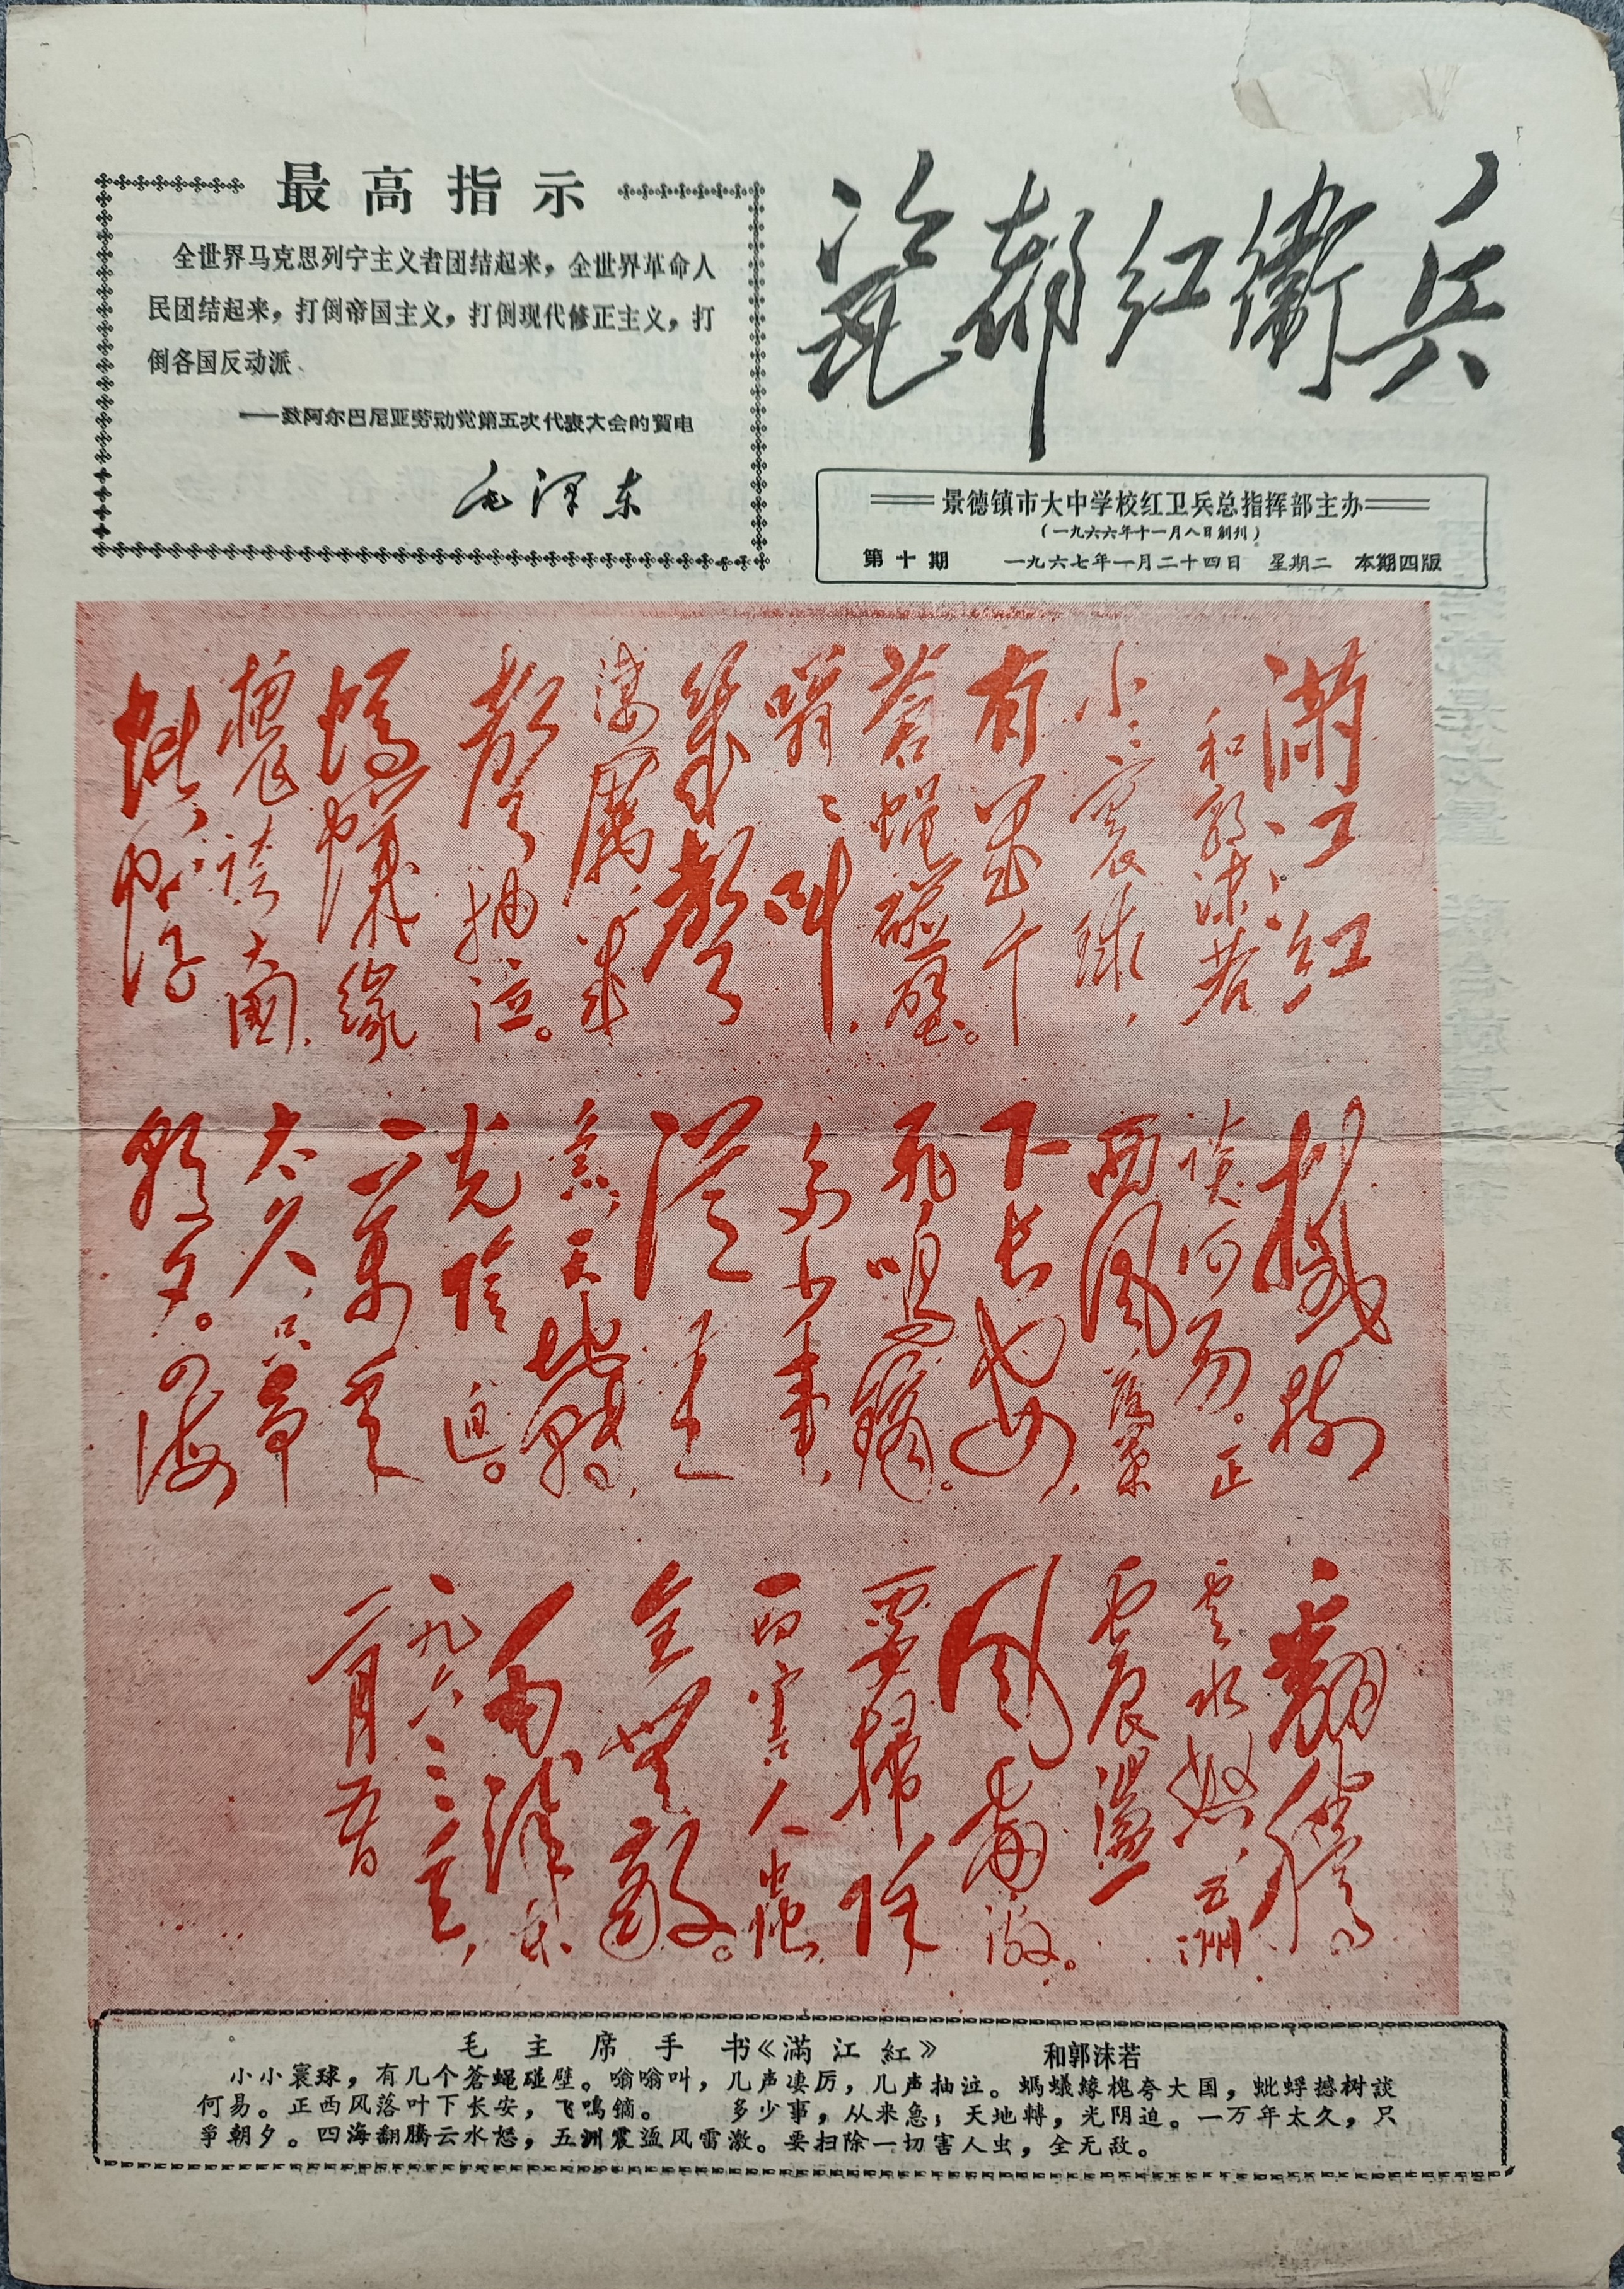 最高指示
全世界马克思列宁主义者团结起来，全世界革命人
民团结起来，打倒帝国主义，打倒现代修正主义，打
倒各国反动派、
——致阿尔巴尼亚劳动党第五次代表大会的賀电
毛泽东
瓷都红衛兵
景德镇市大中学校红卫兵总指挥部主办
（一九六六年十一月八日創刊）
第十期 一九六七年一月二十四日 星期二 本期四版
满江红
和郭沫若
小小寰球，
有几个
苍蝇碰壁。
嗡嗡叫，
几声
凄厉，几
声抽泣。
蚂蚁缘
槐夸大国，
蚍蜉
撼树
谈何易。正
西风落叶
下长安，
飞鸣镝。
多少事，
从来
急；天地转，
光阴迫。
一万年
太久，只争
朝夕。四海
翻腾
云水怒，五洲
震荡
风雷激。
要扫除
一切害人虫，
全无敌。
毛泽东
一九六三年
一月九日
毛主席手书《滿江紅》 和郭沫若
小小寰球，有几个苍蝇碰壁。嗡嗡叫，几声凄厉，几声抽泣。螞蟻緣槐夸大国，蚍蜉撼树談
何易。正西风落叶下长安，飞鳴镝。 多少事，从来急；天地轉，光阴迫。一万年太久，只
爭朝夕。四海翻腾云水怒，五洲震盪风雷激。要扫除一切害人虫，全无敌。